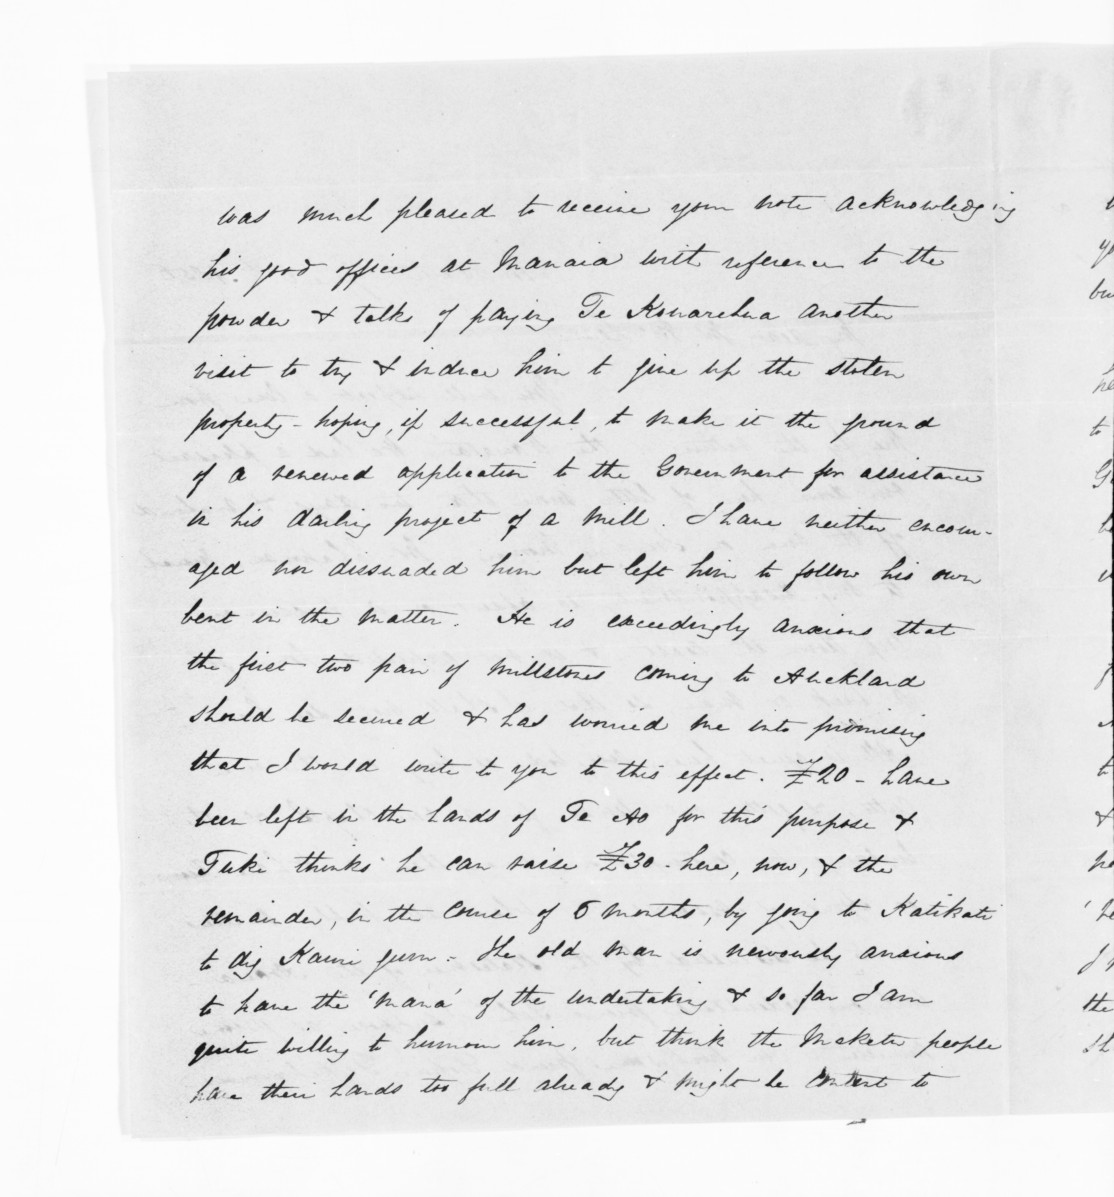 was much pleased to receive your note acknowledging
his good offices at Manaia with reference to the
powder & talks of paying Te Kouarehua another
visit to try & induce him to give up the stolen
property - hoping, if successful, to make it the ground
of a renewed application to the Government for assistance
in his darling project of a mill. I have neither encour-
aged nor dissuaded him but left him to follow his own
bent in the matter. He is exceedingly anxious that
the first two pair of millstones coming to Auckland
should be secured & has worried me into promising
that I would write to you to this effect. £20 - have
been left in the hands of Te Ao for this purpose &
Tuki thinks he can raise £30 - here, now, & the
remainder, in the course of 6 months, by going to Katikati
to dig Kauri gum - The old man is nervously anxious
to have the 'mana' of the undertaking & so far I am
quite willing to humour him, but think the Maketu people
have their hands too full already & might be content to